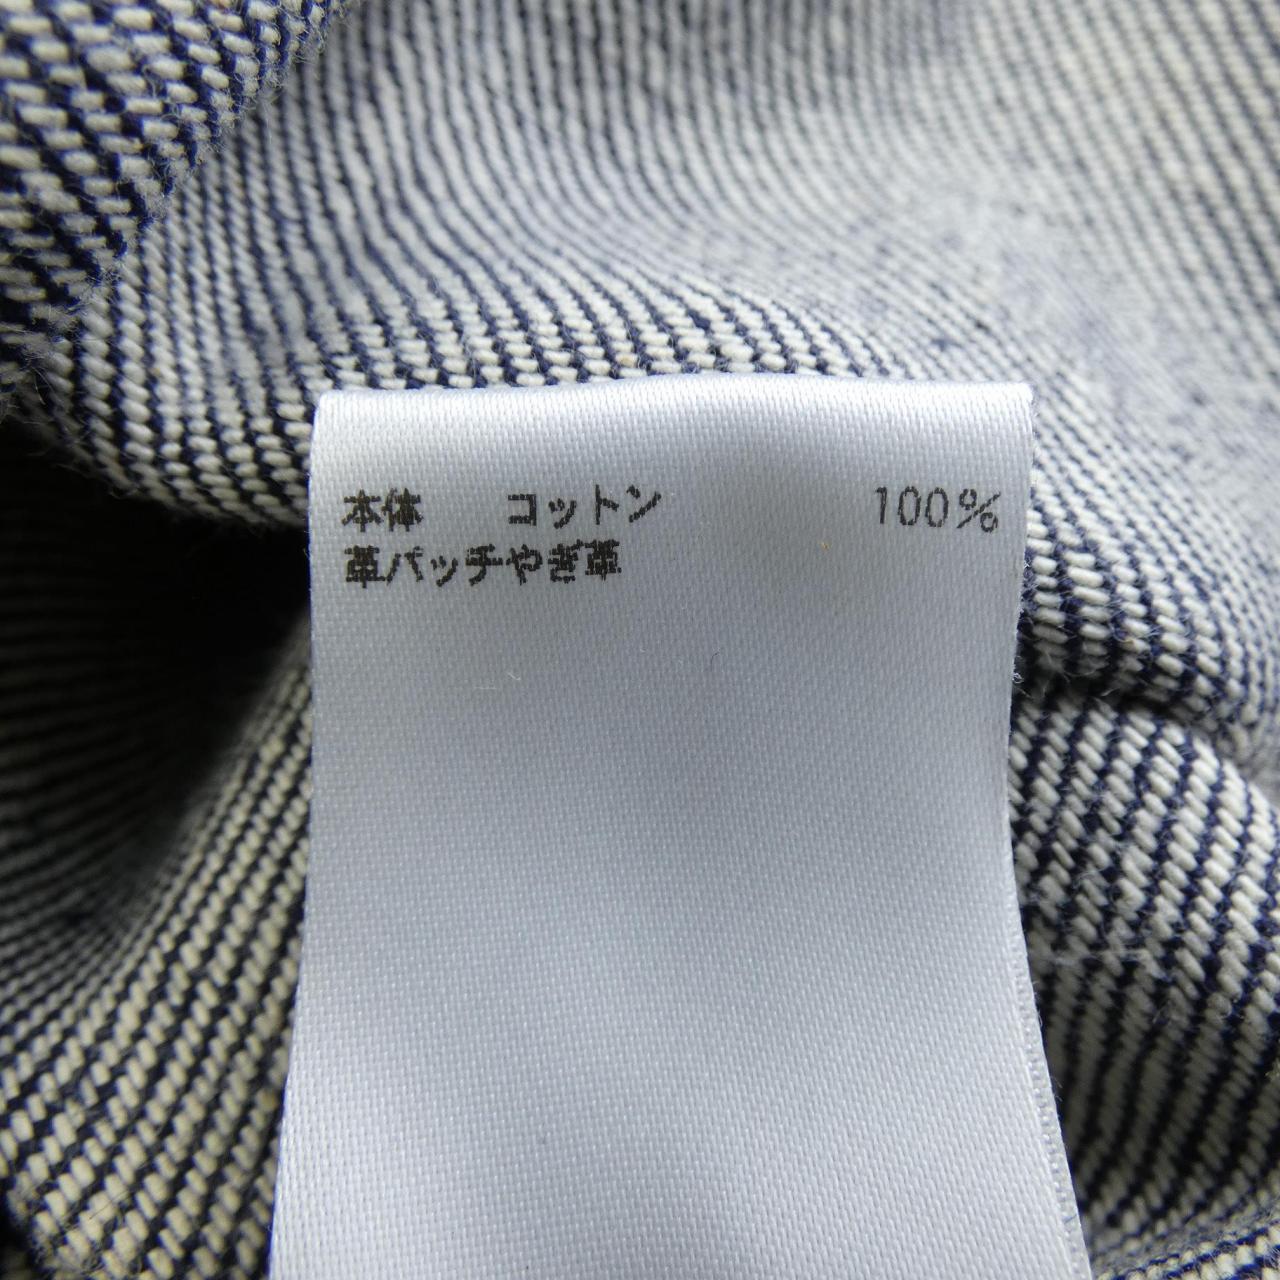 本体　　コットン　　　　　　100%
革パッチやぎ革